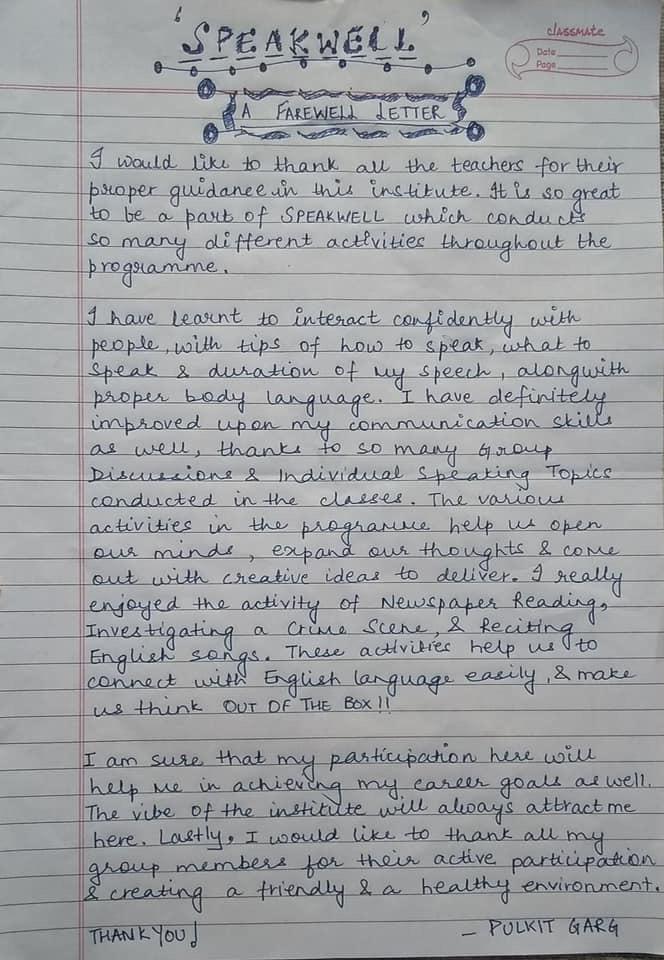 'SPEAKWELL'
classmate
Date
Page
A FAREWELL LETTER
I would like to thank all the teachers for their
proper guidance in this institute. It is so great
to be a part of SPEAKWELL which conducts
so many different activities throughout the
programme.
I have learnt to interact confidently with
people, with tips of how to speak, what to
speak & duration of my speech, alongwith
proper body language. I have definitely
improved upon my communication skills
as well, thanks to so many Group
Discussions & Individual Speaking Topics
conducted in the classes. The various
activities in the programme help us open
our minds, expand our thoughts & come
out with creative ideas to deliver. I really
enjoyed the activity of Newspaper Reading,
Investigating a Crime Scene, & Reciting
English songs. These activities help us to
connect with English language easily, & make
us think OUT OF THE BOX!!
I am sure that my participation here will
help me in achieving my career goals as well.
The vibe of the institute will always attract me
here. Lastly, I would like to thank all my
group members for their active participation
& creating a friendly & a healthy environment.
THANK YOU!
- PULKIT GARG